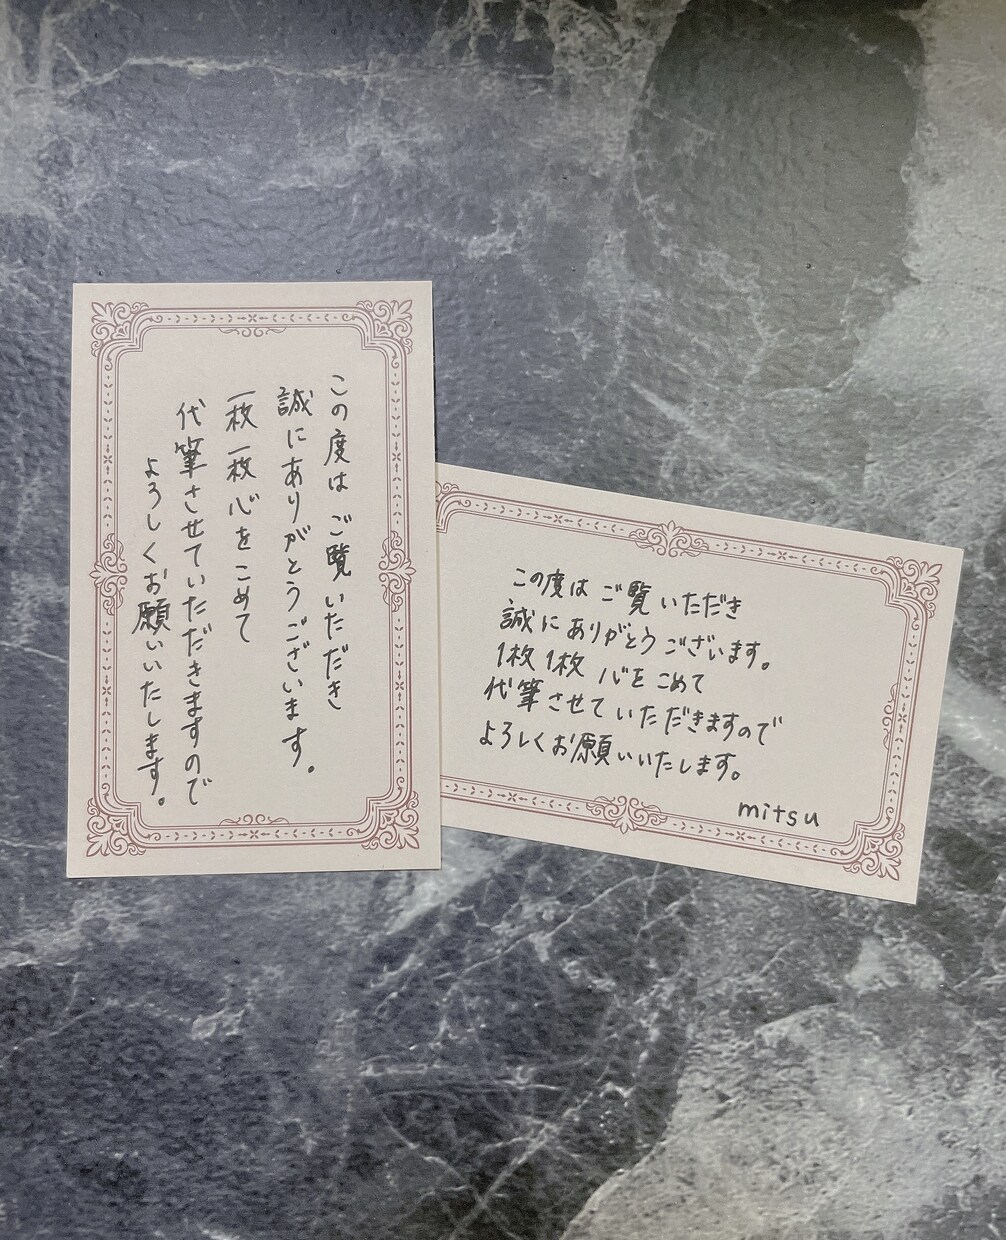 この度はご覧いただき
誠にありがとうございます。
一枚一枚心をこめて
代筆させていただきますので
よろしくお願いいたします。
この度はご覧いただき
誠にありがとうございます。
1枚1枚心をこめて
代筆させていただきますので
よろしくお願いいたします。
mitsu